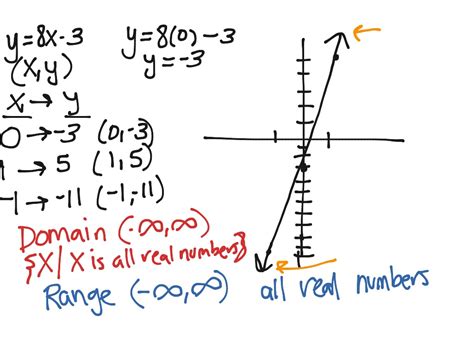 y=8x-3
y=8(0)-3
y=-3
(x,y)
x → y
0 → -3 (0,-3)
1 → 5 (1,5)
-1 → -11 (-1,-11)
Domain (-∞,∞)
{X | X is all real numbers}
Range (-∞,∞) all real numbers